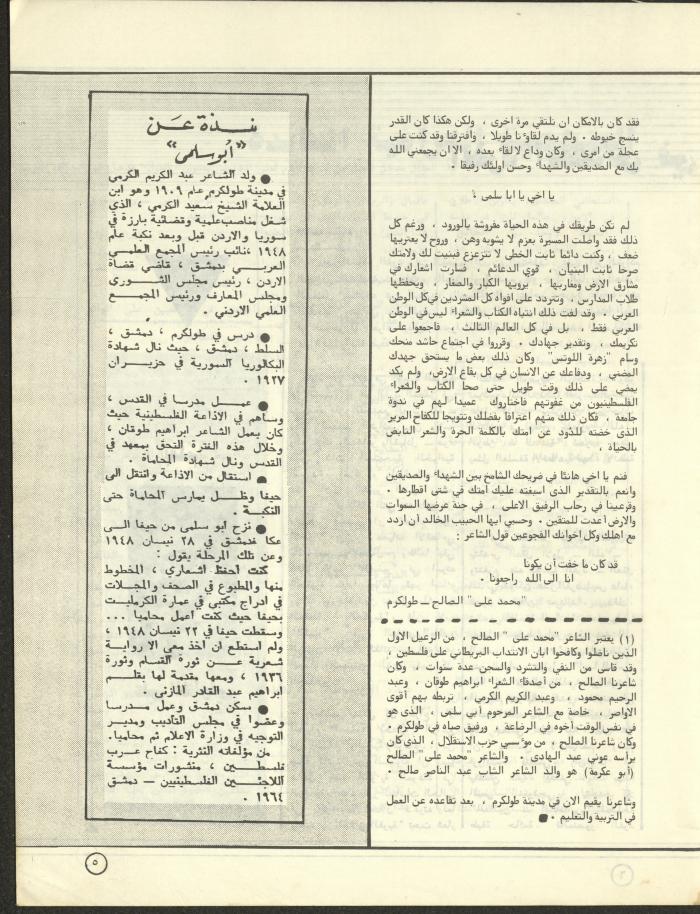 فقد كان بالامكان ان نلتقي مرة اخرى ، ولكن هكذا كان القدر
ينسج خيوطه . ولم يدم لقاؤنا طويلا ، وافترقنا وقد كنت على
عجلة من امرى ، وكان وداع لا لقاء بعده ، الا ان يجمعني الله
بك مع الصديقين والشهداء وحسن اولئك رفيقا .
يا اخي يا ابا سلمى ،
لم تكن طريقك في هذه الحياة مفروشة بالورود ، ورغم كل
ذلك فقد واصلت المسيرة بعزم لا يشوبه وهن ، وروح لا يعتريها
ضعف ، وكنت دائما ثابت الخطى لا تتزعزع فبنيت لك ولامتك
صرحا ثابت البنيان ، قوي الدعائم ، فسارت اشعارك في
مشارق الارض ومغاربها ، يرويها الكبار والصغار ، ويحفظها
طلاب المدارس ، وتتردد على افواه كل المشردين في كل الوطن
العربي . وقد لفت ذلك انتباه الكتاب والشعراء ليس في الوطن
العربي فقط ، بل في كل العالم الثالث ، فاجمعوا على
تكريمك ، وتقدير جهادك . وقرروا في اجتماع حاشد منحك
وسام "زهرة اللوتس" وكان ذلك بعض ما يستحق جهدك
المضني ، ودفاعك عن الانسان في كل بقاع الارض، ولم يكد
يمضي على ذلك وقت طويل حتى صحا الكتاب والشعراء
الفلسطينيون من غفوتهم فاختاروك عميدا لهم في ندوة
جامعة ، فكان ذلك منهم اعترافا بفضلك وتتويجا للكفاح المرير
الذى خضته للذود عن امتك بالكلمة الحرة والشعر النابض
بالحياة .
فنم يا اخي هانئا في ضريحك الشامخ بين الشهداء والصديقين
وانعم بالتقدير الذى اسبغته عليك أمتك في شتى اقطارها .
وقرعينا في رحاب الرفيق الاعلى ، في جنة عرضها السموات
والارض أعدت للمتقين . وحسبي ايها الحبيب الخالد أن اردد
مع اهلك وكل اخوانك المفجوعين قول الشاعر :
قد كان ما خفت أن يكونا
انا الى الله راجعونا .
"محمد على" الصالح ـ طولكرم
(١) يعتبر الشاعر "محمد على" الصالح ، من الرعيل الاول
الذين ناضلوا وكافحوا ابان الانتداب البريطاني على فلسطين ،
وقد قاسى من النفي والتشرد والسجن عدة سنوات ، وكان
شاعرنا الصالح ، من أصدقاء الشعراء ابراهيم طوقان ، وعبد
الرحيم محمود ، وعبد الكريم الكرمي ، تربطه بهم أقوى
الاواصر ، خاصة مع الشاعر المرحوم أبي سلمى ، الذى هو
في نفس الوقت أخوه في الرضاعة ، ورفيق صباه في طولكرم .
وكان شاعرنا الصالح ، من مؤسسي حزب الاستقلال ، الذى كان
يرأسه عوني عبد الهادى . والشاعر "محمد على" الصالح
(أبو عكرمة) هو والد الشاعر الشاب عبد الناصر صالح .
وشاعرنا يقيم الان في مدينة طولكرم ، بعد تقاعده عن العمل
في التربية والتعليم .
نبذة عن
«أبو سلمى»
● ولد الشاعر عبد الكريم الكرمي
في مدينة طولكرم عام ١٩٠٩ وهو ابن
العلامة الشيخ سعيد الكرمي ، الذي
شغل مناصب علمية وقضائية بارزة في
سوريا والاردن قبل وبعد نكبة عام
١٩٤٨ ،نائب رئيس المجمع العلمي
العربي بدمشق ، قاضي قضاة
الاردن ، رئيس مجلس الشورى
ومجلس المعارف ورئيس المجمع
العلمي الاردني .
● درس في طولكرم ، دمشق ،
السلط ، دمشق ، حيث نال شهادة
البكالوريا السورية في حزيران
١٩٢٧ .
● عمل مدرسا في القدس ،
وساهم في الاذاعة الفلسطينية حيث
كان يعمل الشاعر ابراهيم طوقان ،
وخلال هذه الفترة التحق بمعهد في
القدس ونال شهادة المحاماة .
● استقال من الاذاعة وانتقل الى
حيفا وظل يمارس المحاماة حتى
النكبة .
● نزح ابو سلمى من حيفا الى
عكا فدمشق في ٢٨ نيسان ١٩٤٨
وعن تلك المرحلة يقول :
كنت أحفظ اشعاري ، المخطوط
منها والمطبوع في الصحف والمجلات
في ادراج مكتبي في عمارة الكرمليت
بحيفا حيث كنت أعمل محاميا ...
وسقطت حيفا في ٢٢ نيسان ١٩٤٨ ،
ولم استطع ان آخذ معي الا رواية
شعرية عن ثورة القسام وثورة
١٩٣٦ ، ومعها مقدمة لها بقلم
ابراهيم عبد القادر المازني .
● سكن دمشق وعمل مدرسا
وعضوا في مجلس التأديب ومدير
التوجيه في وزارة الاعلام ثم محاميا.
من مؤلفاته النثرية : كفاح عرب
فلسطين ، منشورات مؤسسة
اللاجئين الفلسطينيين — دمشق
١٩٦٤ .
٥